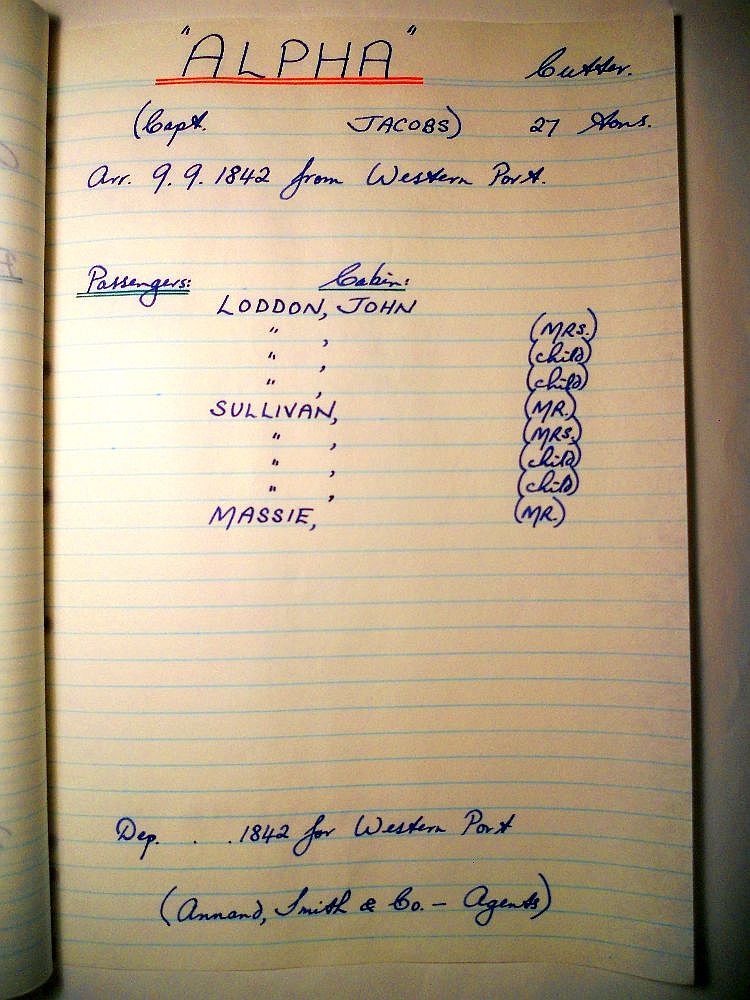 "ALPHA" Cutter.
(Capt. JACOBS) 27 Tons.
Arr. 9. 9. 1842 from Western Port.
Passengers: Cabin:
LODDON, JOHN
" , (MRS.)
" , (child)
" , (child)
SULLIVAN, (MR.)
" , (MRS.)
" , (child)
" , (child)
MASSIE, (MR.)
Dep. . . 1842 for Western Port
(Annand, Smith & Co. - Agents)